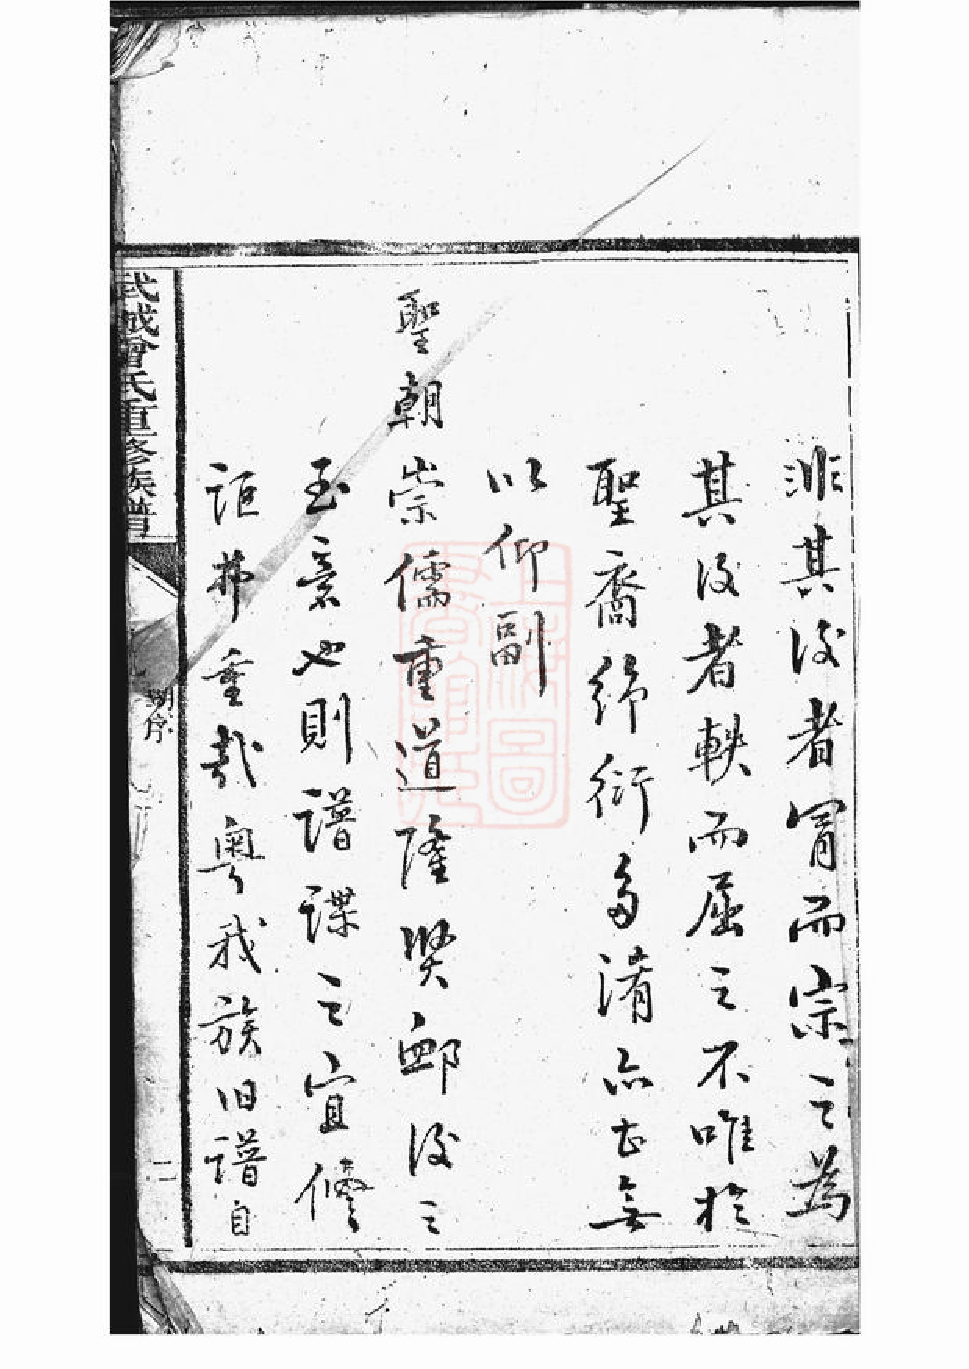 非其後者冒而宗之為
其後者軼而屈之不唯於
聖裔綿衍多淆亦甚無
以仰副
聖朝崇儒重道隆獎卹後之
至意也則譜諜之宜修
詎弗重哉粵我族旧譜自
武城曾氏重修族譜
序
二